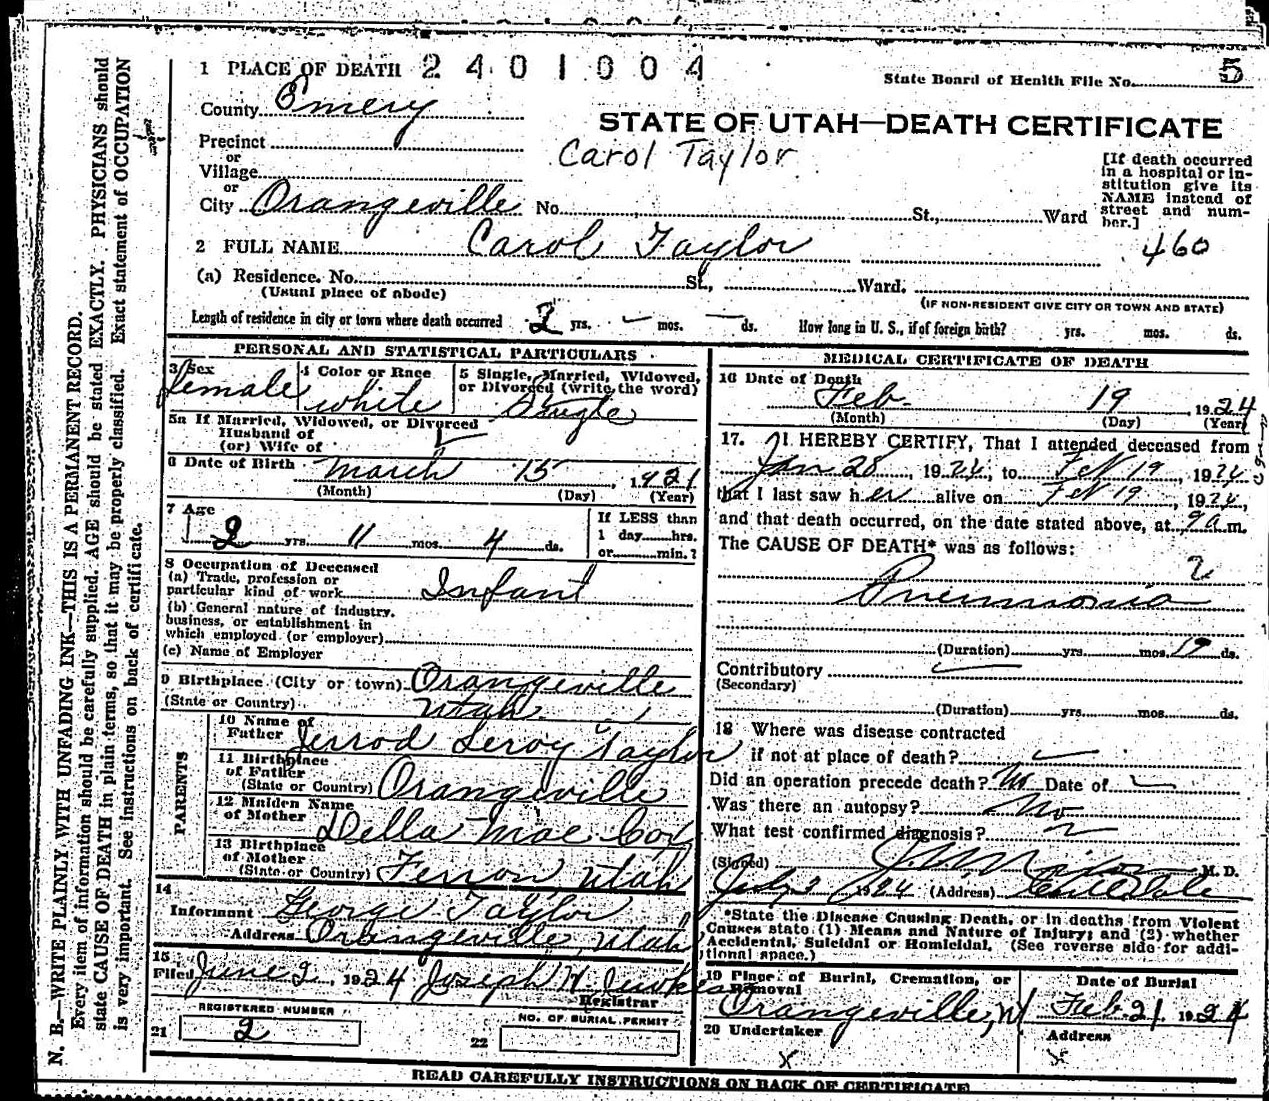 1 PLACE OF DEATH 2401004
State Board of Health File No. 5
County Emery
STATE OF UTAH—DEATH CERTIFICATE
Precinct
Carol Taylor
or
Village
or
City Orangeville No. St., Ward
[If death occurred
in a hospital or in-
stitution give its
NAME instead of
street and num-
ber.]
2 FULL NAME Carol Taylor
460
(a) Residence. No. St., Ward.
(Usual place of abode)
(IF NON-RESIDENT GIVE CITY OR TOWN AND STATE)
Length of residence in city or town where death occurred 2 yrs. — mos. — ds. How long in U. S., if of foreign birth? yrs. mos. ds.
PERSONAL AND STATISTICAL PARTICULARS
3 Sex Female
4 Color or Race white
5 Single, Married, Widowed,
or Divorced (write the word)
Single
5a If Married, Widowed, or Divorced
Husband of
(or) Wife of
6 Date of Birth March 15, 1921
(Month) (Day) (Year)
7 Age
2 yrs. 11 mos. 4 ds.
If LESS than
1 day hrs.
or min.?
8 Occupation of Deceased
(a) Trade, profession or
particular kind of work Infant
(b) General nature of industry.
business, or establishment in
which employed (or employer)
(c) Name of Employer
9 Birthplace (City or town) Orangeville
(State or Country) Utah
PARENTS
10 Name of
Father Jerrod Leroy Taylor
11 Birthplace
of Father
(State or Country) Orangeville
12 Maiden Name
of Mother Della Mae Cox
13 Birthplace
of Mother
(State or Country) Ferron, Utah
14
Informant George Taylor
Address Orangeville, Utah
15
Filed June 2, 1924 Joseph W Jewkes
Registrar
REGISTERED NUMBER
21 2
NO. OF BURIAL PERMIT
22
MEDICAL CERTIFICATE OF DEATH
16 Date of Death
Feb. 19, 1924
(Month) (Day) (Year)
17. I HEREBY CERTIFY, That I attended deceased from
Jan 28, 1924, to Feb 19, 1924,
that I last saw her alive on Feb 19, 1924,
and that death occurred, on the date stated above, at 9 a m.
The CAUSE OF DEATH* was as follows:
Pneumonia
(Duration) yrs. mos. 19 ds.
Contributory
(Secondary)
(Duration) yrs. mos. ds.
18 Where was disease contracted
if not at place of death?
Did an operation precede death? No Date of
Was there an autopsy? No
What test confirmed diagnosis?
(Signed) M. D.
1924 (Address)
*State the Disease Causing Death, or in deaths from Violent
Causes state (1) Means and Nature of Injury; and (2) whether
Accidental, Suicidal or Homicidal. (See reverse side for addi-
tional space.)
19 Place of Burial, Cremation, or
Removal
Orangeville,
Date of Burial
Feb. 21, 1924
20 Undertaker
x
Address
x
READ CAREFULLY INSTRUCTIONS ON BACK OF CERTIFICATE
N. B.—WRITE PLAINLY WITH UNFADING INK—THIS IS A PERMANENT RECORD.
Every item of information should be carefully supplied. AGE should be stated EXACTLY. PHYSICIANS should
state CAUSE OF DEATH in plain terms, so that it may be properly classified. Exact statement of OCCUPATION
is very important. See instructions on back of certificate.